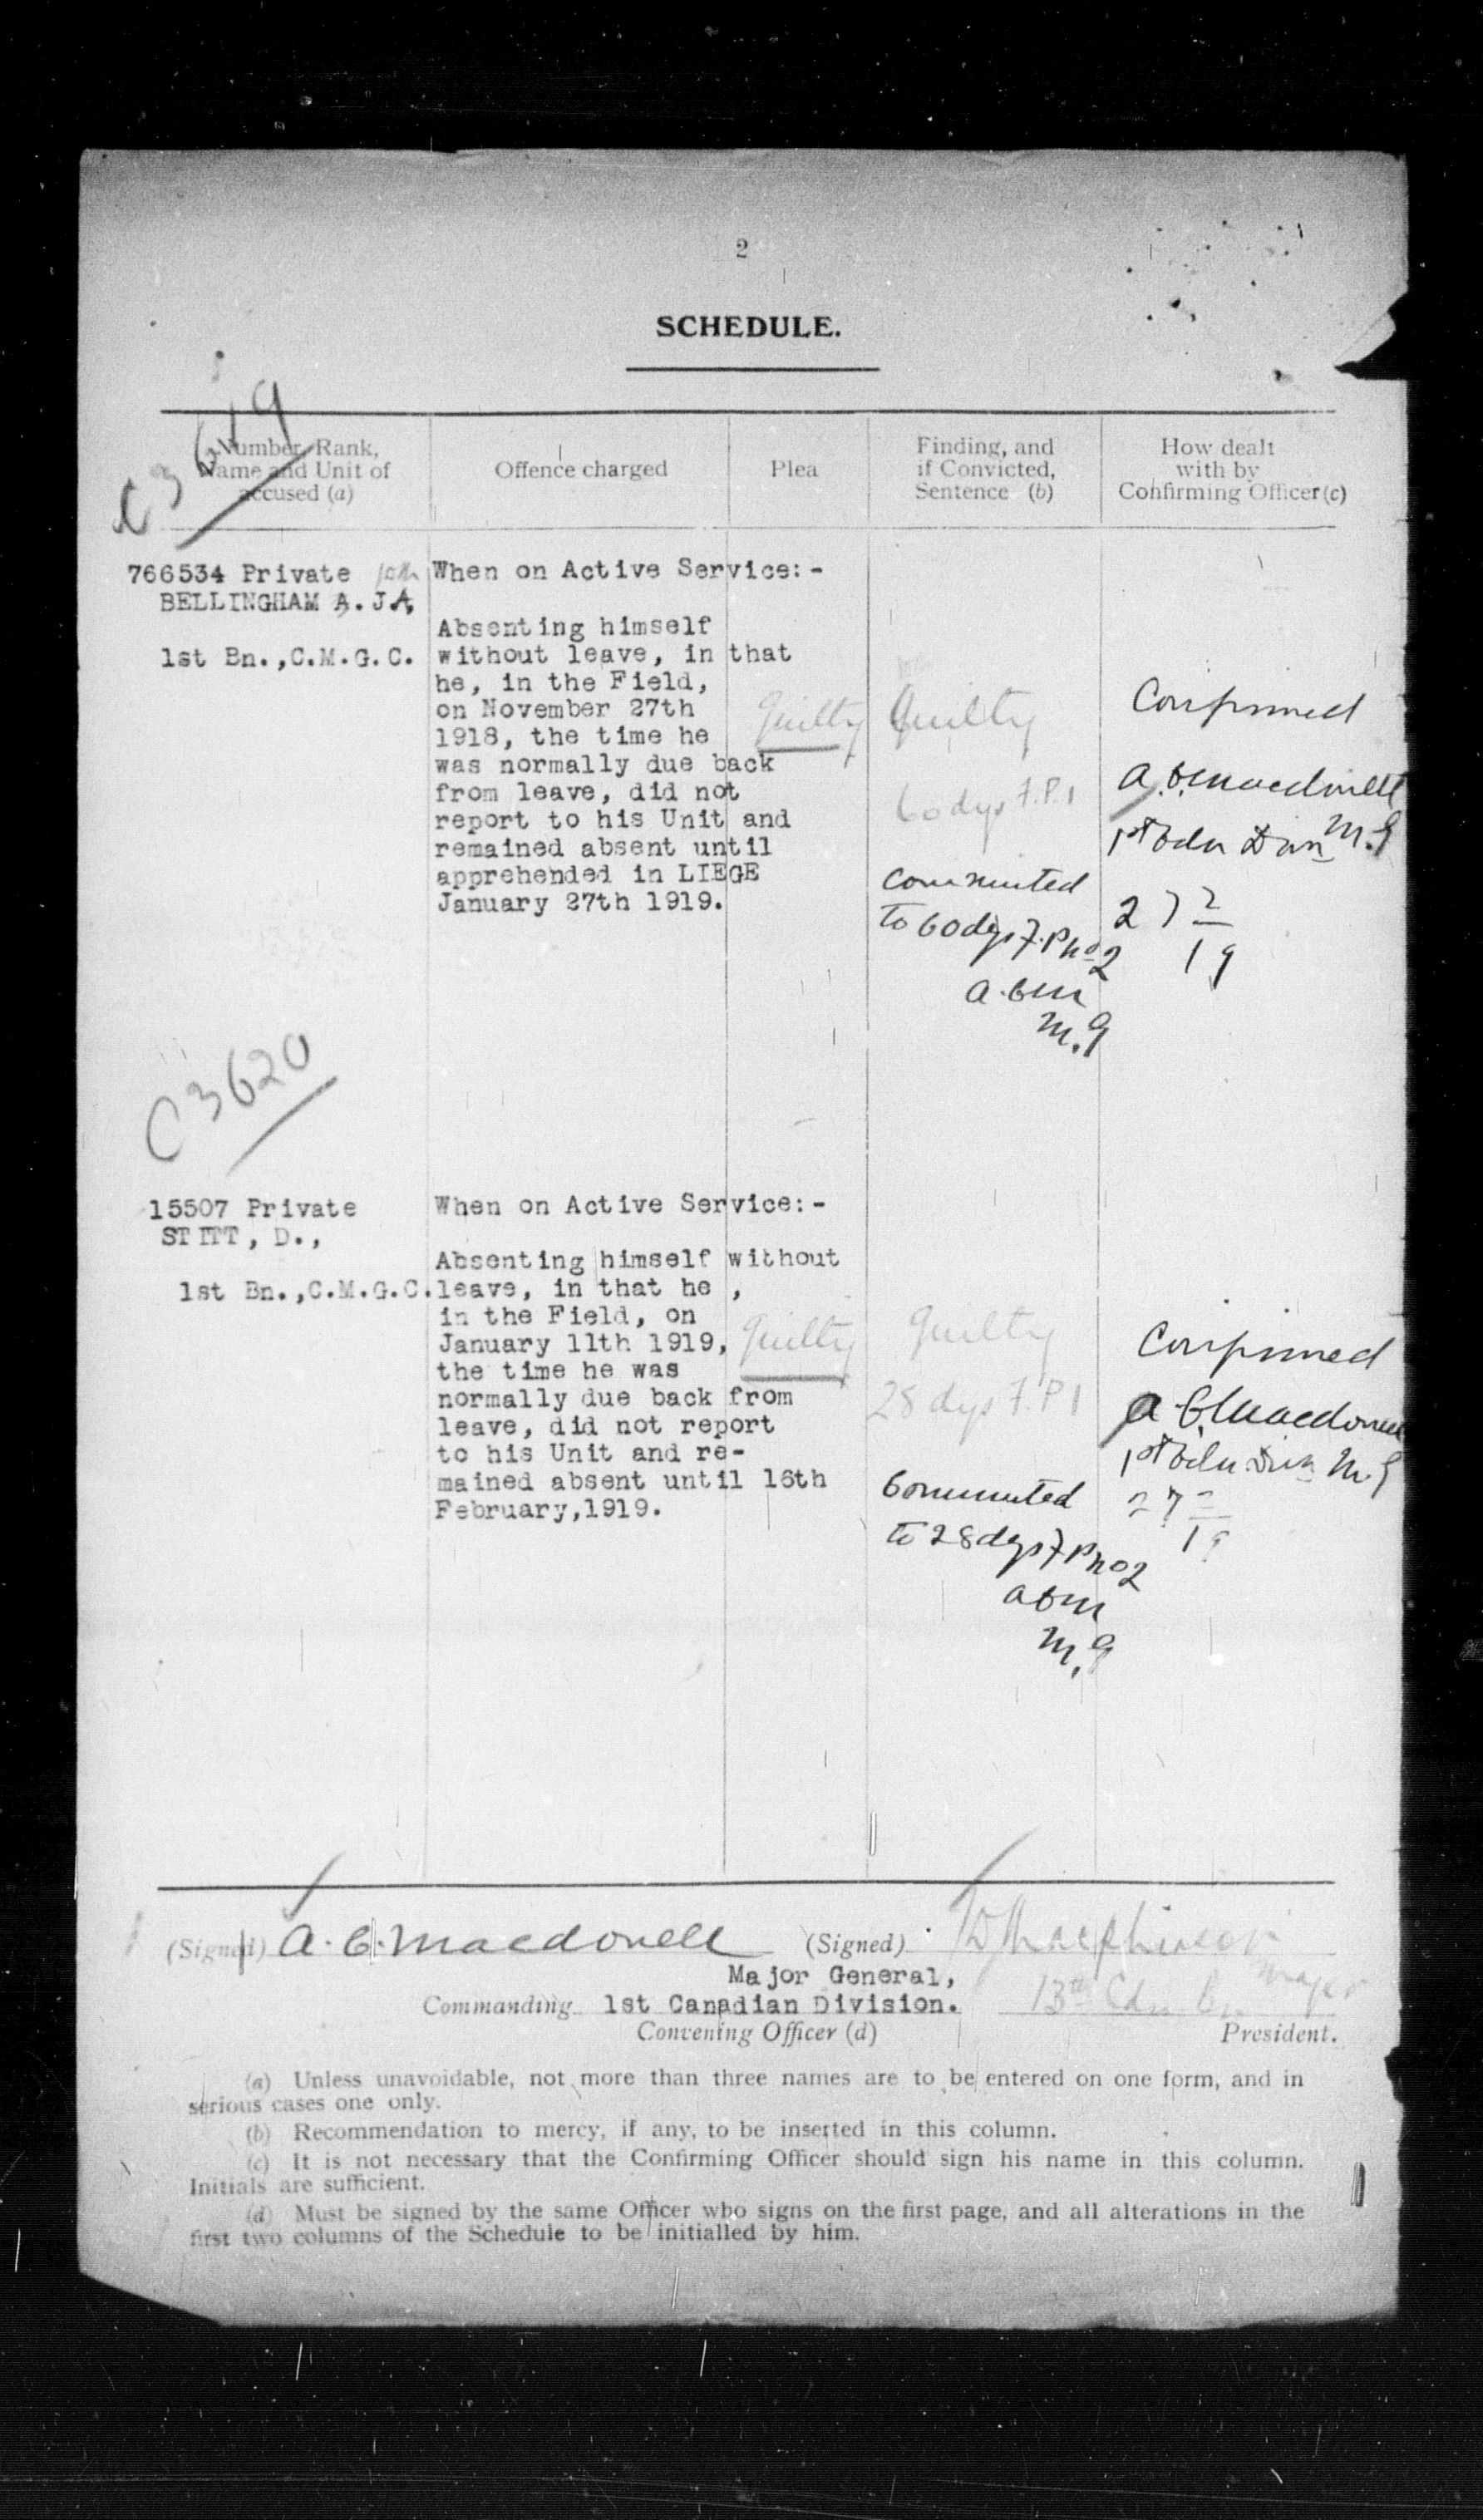 2
SCHEDULE.
C3619
Number, Rank,
Name and Unit of
accused (a)
Offence charged
Plea
Finding, and
if Convicted,
Sentence (b)
How dealt
with by
Confirming Officer (c)
766534 Private
BELLINGHAM A. J.A,
1st Bn.,C.M.G.C.
When on Active Service:-
Absenting himself
without leave, in that
he, in the Field,
on November 27th
1918, the time he
was normally due back
from leave, did not
report to his Unit and
remained absent until
apprehended in LIEGE
January 27th 1919.
Guilty
Guilty
60 dys F.P.1
Commuted
to 60 dys F.P no 2
A.C.M
M.G
Confirmed
A.C. Macdonell
M.G
1st Cdn Div
27 2
19
C3620
15507 Private
STITT, D.,
1st Bn.,C.M.G.C.
When on Active Service:-
Absenting himself without
leave, in that he ,
in the Field, on
January 11th 1919,
the time he was
normally due back from
leave, did not report
to his Unit and re-
mained absent until 16th
February,1919.
Guilty
Guilty
28 dys F.P 1
Commuted
to 28 dys F P no 2
A C M
M.G
Confirmed
A.C. Macdonell
1st Cdn Div M.G
27 2
19
(Signed) A.C. Macdonell
Major General,
Commanding 1st Canadian Division.
Convening Officer (d)
(Signed)
Major
13th Cdn Bn
President.
(a) Unless unavoidable, not more than three names are to be entered on one form, and in
serious cases one only.
(b) Recommendation to mercy, if any, to be inserted in this column.
(c) It is not necessary that the Confirming Officer should sign his name in this column.
Initials are sufficient.
(d) Must be signed by the same Officer who signs on the first page, and all alterations in the
first two columns of the Schedule to be initialled by him.